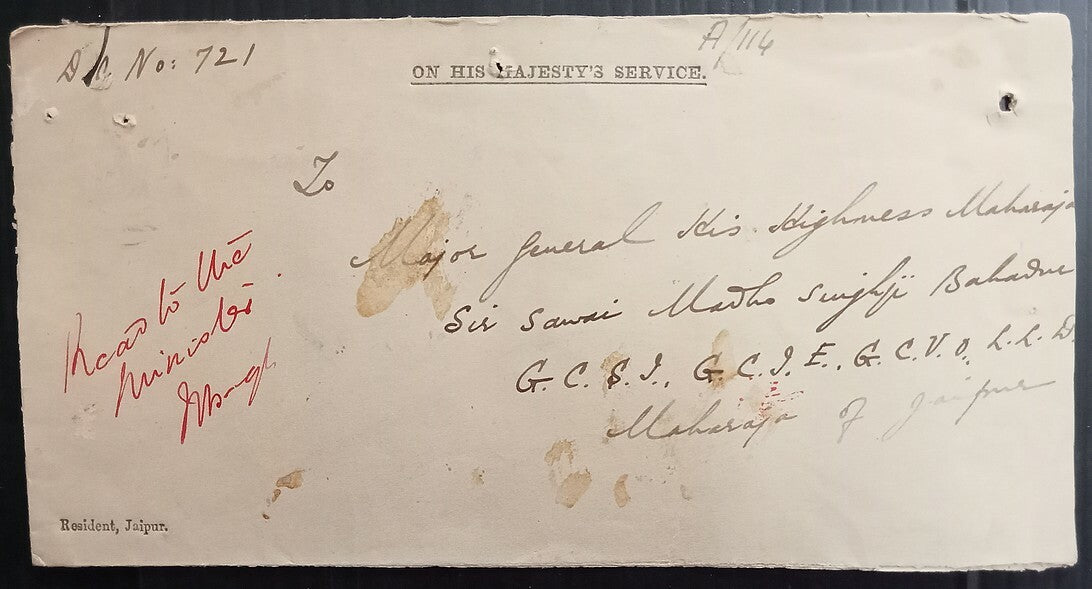 D.O. No: 721
A/114
ON HIS MAJESTY'S SERVICE.
To
Major General His Highness Maharaja
Sir Sawai Madho Singhji Bahadur
G. C. S. I., G. C. I. E., G. C. V. O, L. L. D.
Maharaja of Jaipur
Read to the
Minister
Resident, Jaipur.